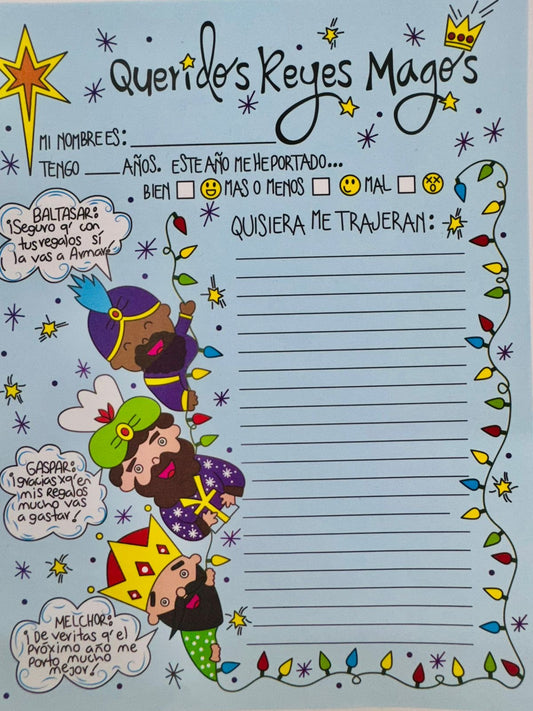 Queridos Reyes Magos
MI NOMBRE ES:
TENGO ____ AÑOS. ESTE AÑO ME HE PORTADO...
BIEN MAS O MENOS MAL
QUISIERA ME TRAJERAN:
BALTASAR:
¡Seguro q' con
tus regalos sí
la vas a Armar!
GASPAR:
¡gracias xq' en
mis REGALOS
mucho vas
a gastar!
MELCHOR:
¡DE VERITAS q' el
PRÓXIMO AÑO ME
PORTO MUCHO
MEJOR!